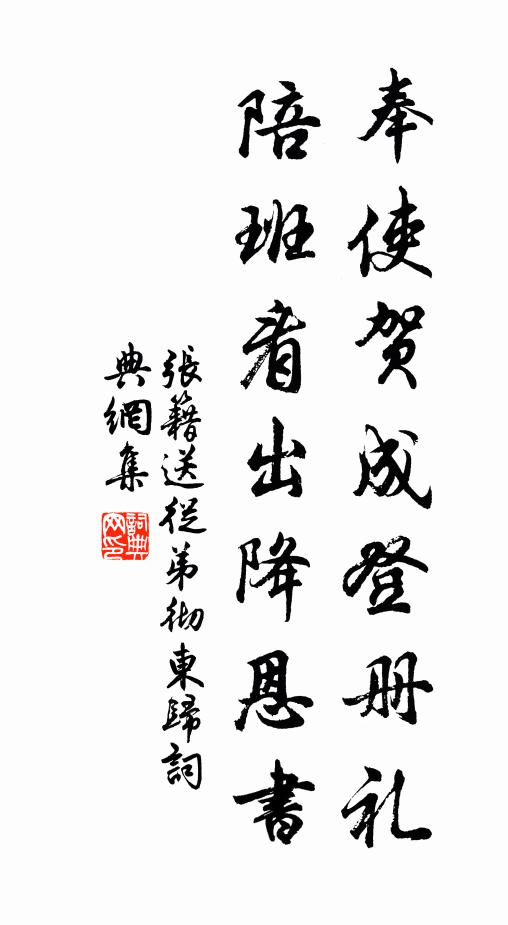 奉使賀成登册礼
陪班看出降恩書
張籍送從弟彻東歸詞
典網集
詞典
网印